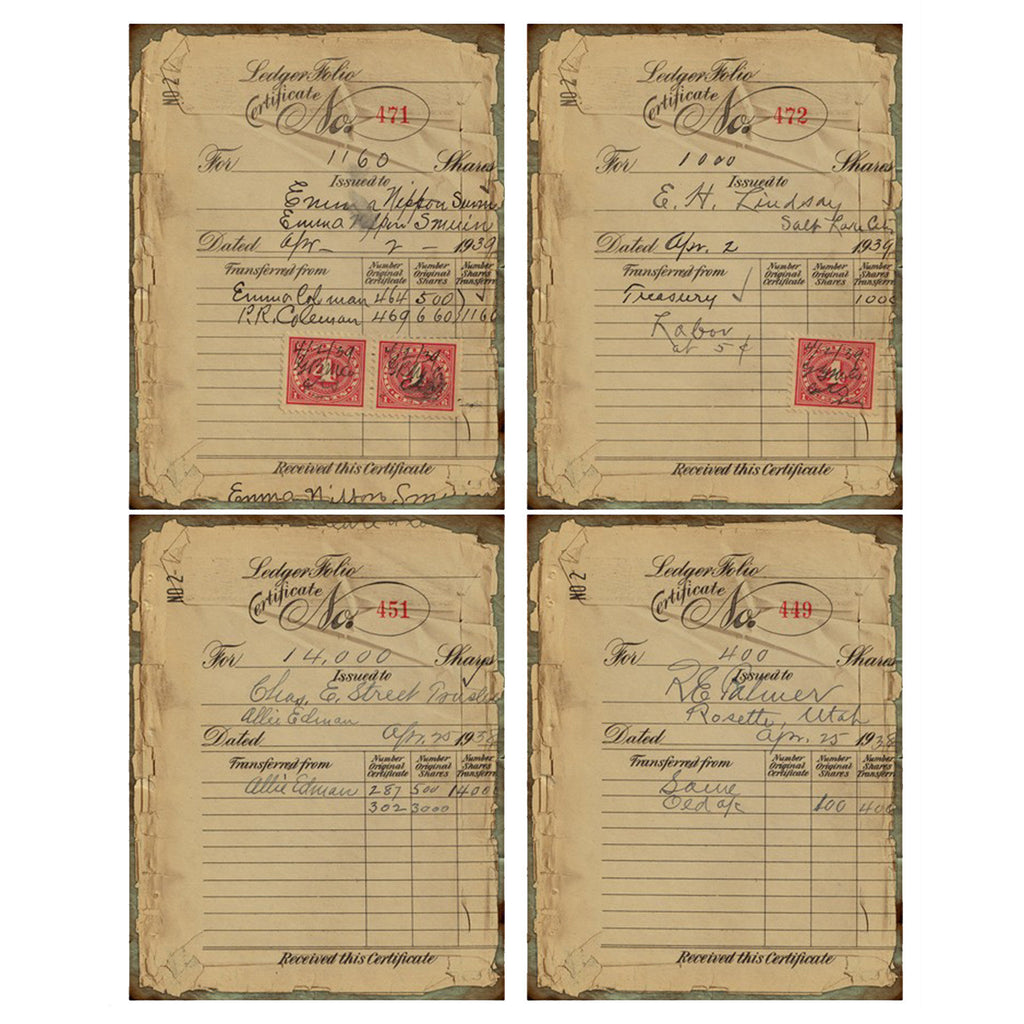 NO 2
Ledger Folio
Certificate No. 471
For 1160 Shares
Issued to
Emma Nipton
Emma Smuin
Dated Apr - 2 - 1939
Transferred from Number Original Certificate Number Original Shares Number Shares Transferre
Emma Coleman 464 500
P.R. Coleman 469 660 1160
4/2/39 4/2/39
4 4
Received this Certificate
Emma
NO 2
Ledger Folio
Certificate No. 472
For 1000 Shares
Issued to
E. H. Lindsay
Salt Lake City
Dated Apr. 2 1939
Transferred from Number Original Certificate Number Original Shares Number Shares Transferre
Treasury 1000
Labor
at 5 ¢
4/2/39
4
Received this Certificate
NO 2
Ledger Folio
Certificate No. 451
For 14,000 Shares
Issued to
Chas. E. Street
Allie Edman
Dated Apr. 25 1938
Transferred from Number Original Certificate Number Original Shares Number Shares Transferre
Allie Edman 287 500 14000
302 3000
Received this Certificate
NO 2
Ledger Folio
Certificate No. 449
For 400 Shares
Issued to
R E Palmer
Rosette, Utah
Dated Apr. 25 1938
Transferred from Number Original Certificate Number Original Shares Number Shares Transferre
Same
Old a/c 100 400
Received this Certificate